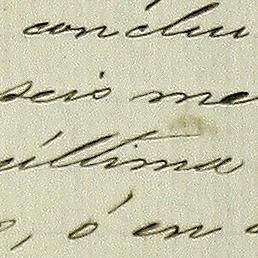 conclu
seis me
última
o, ó en